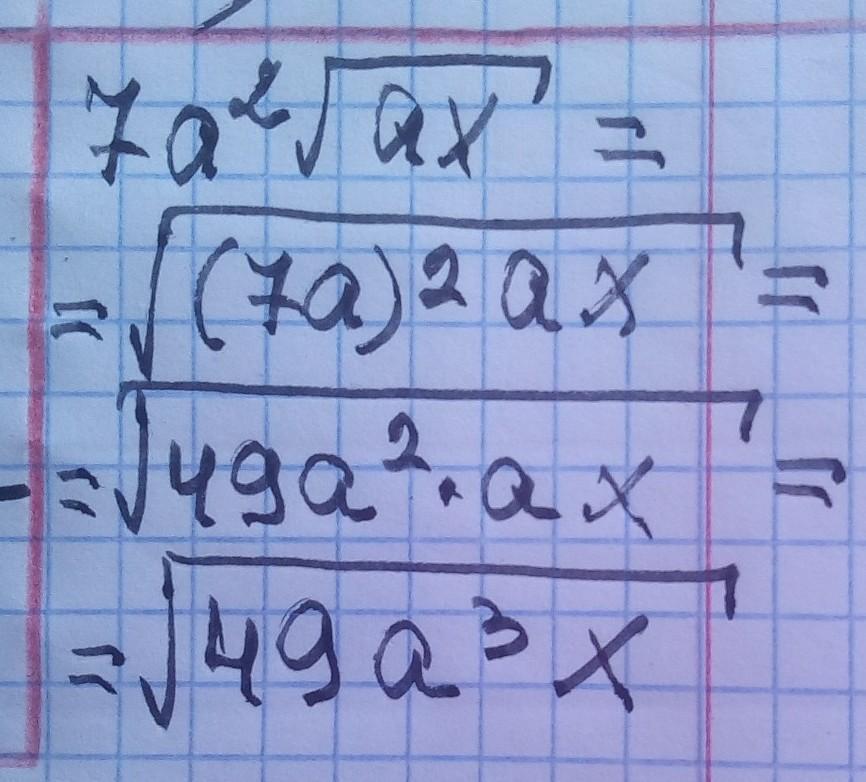 7a²√ax =
= √(7a)² a x =
= √49a² · a x =
= √49a³ x